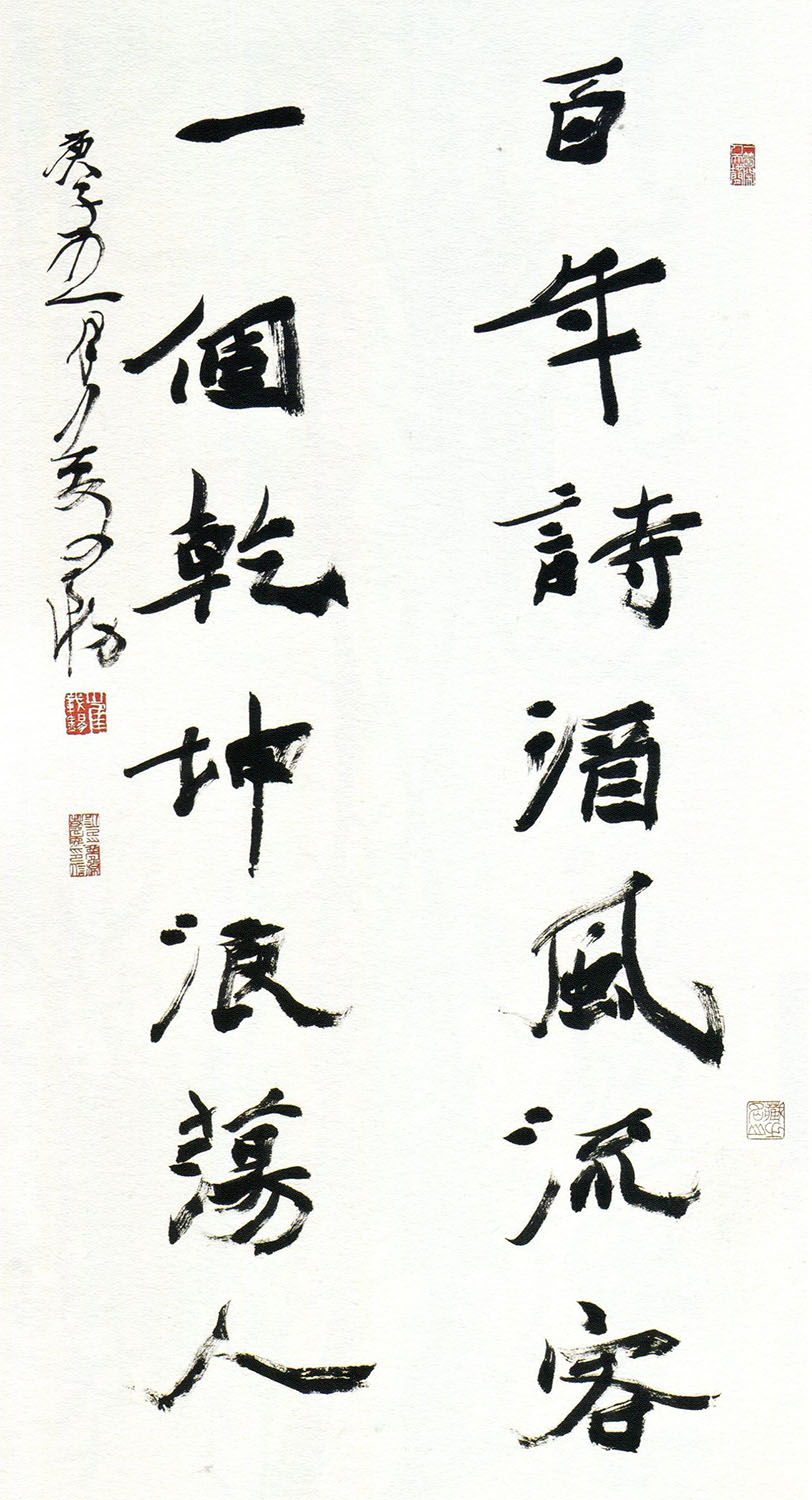 百年詩酒風流客
一個乾坤浪蕩人
庚子